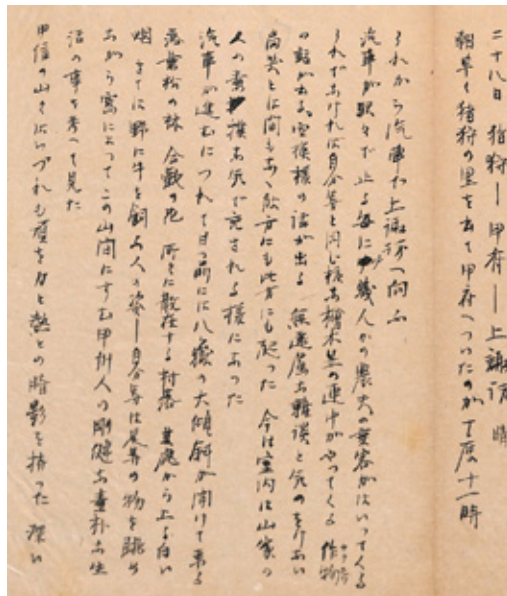 二十八日 猪狩ー甲府ー上諏訪 晴
朝早く猪狩の里を出て甲府へついたのが丁度十一時
それから汽車で上諏訪へ向ふ
汽車が駅々で止る毎に幾人かの農夫の乗客がはいってくる
それでなければ自分等と同じ様な檜木笠の連中がやってくる 作物
の話が出る、空模様の話が出る 無遠慮な雑談と気の
高笑とは間もなく彼方にも此方にも起った 今は室内は山家の
人の素撲な気で充される様になった
汽車が進むにつれて目の前には八嶽の大傾斜が開けて来る
落葉松の林 合歓の花 所々に散在する村落 其処から上る白い
烟 さては野に牛を飼ふ人の姿ー自分等は是等の物を眺め
ながら窓によってこの山間にすむ甲州人の剛健な素朴な生
活の事を考へて見た
甲信の山々はいづれも頂を力と熱との暗影を持った 深い